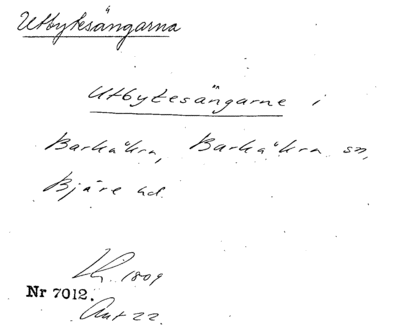 Utbytesängarna
Utbytesängarne i
Barkåkra, Barkåkra sn,
Bjäre hd.
1809
Nr 7012.
Akt 22.